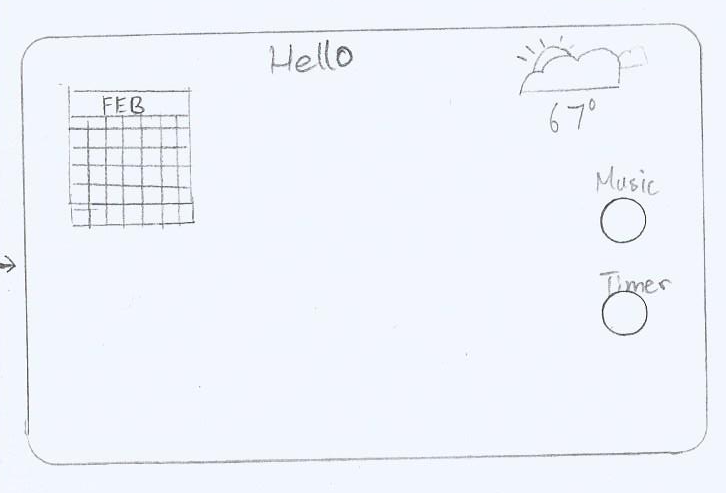 Hello
FEB
67°
Music
Timer